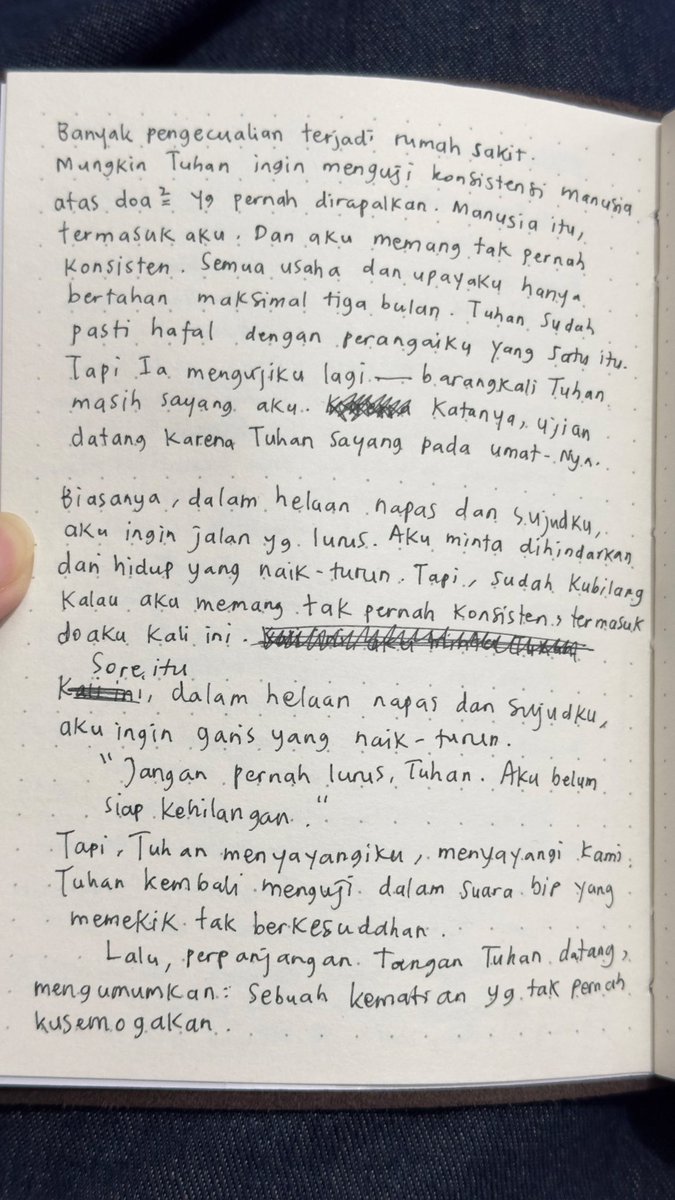 Banyak pengecualian terjadi rumah sakit.
Mungkin Tuhan ingin menguji konsistensi manusia
atas doa² yg pernah dirapalkan. Manusia itu,
termasuk aku. Dan aku memang tak pernah
konsisten. Semua usaha dan upayaku hanya
bertahan maksimal tiga bulan. Tuhan sudah
pasti hafal dengan perangaiku yang satu itu.
Tapi Ia mengujiku lagi — barangkali Tuhan
masih sayang aku. Katanya, ujian
datang karena Tuhan sayang pada umat-Nya.
Biasanya, dalam helaan napas dan sujudku,
aku ingin jalan yg lurus. Aku minta dihindarkan
dan hidup yang naik-turun. Tapi, sudah kubilang
kalau aku memang tak pernah konsisten, termasuk
doaku kali ini.
Sore itu
Kali ini, dalam helaan napas dan sujudku,
aku ingin garis yang naik-turun.
"Jangan pernah lurus, Tuhan. Aku belum
siap kehilangan."
Tapi, Tuhan menyayangiku, menyayangi kami.
Tuhan kembali menguji dalam suara bip yang
memekik tak berkesudahan.
Lalu, perpanjangan tangan Tuhan datang,
mengumumkan: sebuah kematian yg tak pernah
kusemogakan.